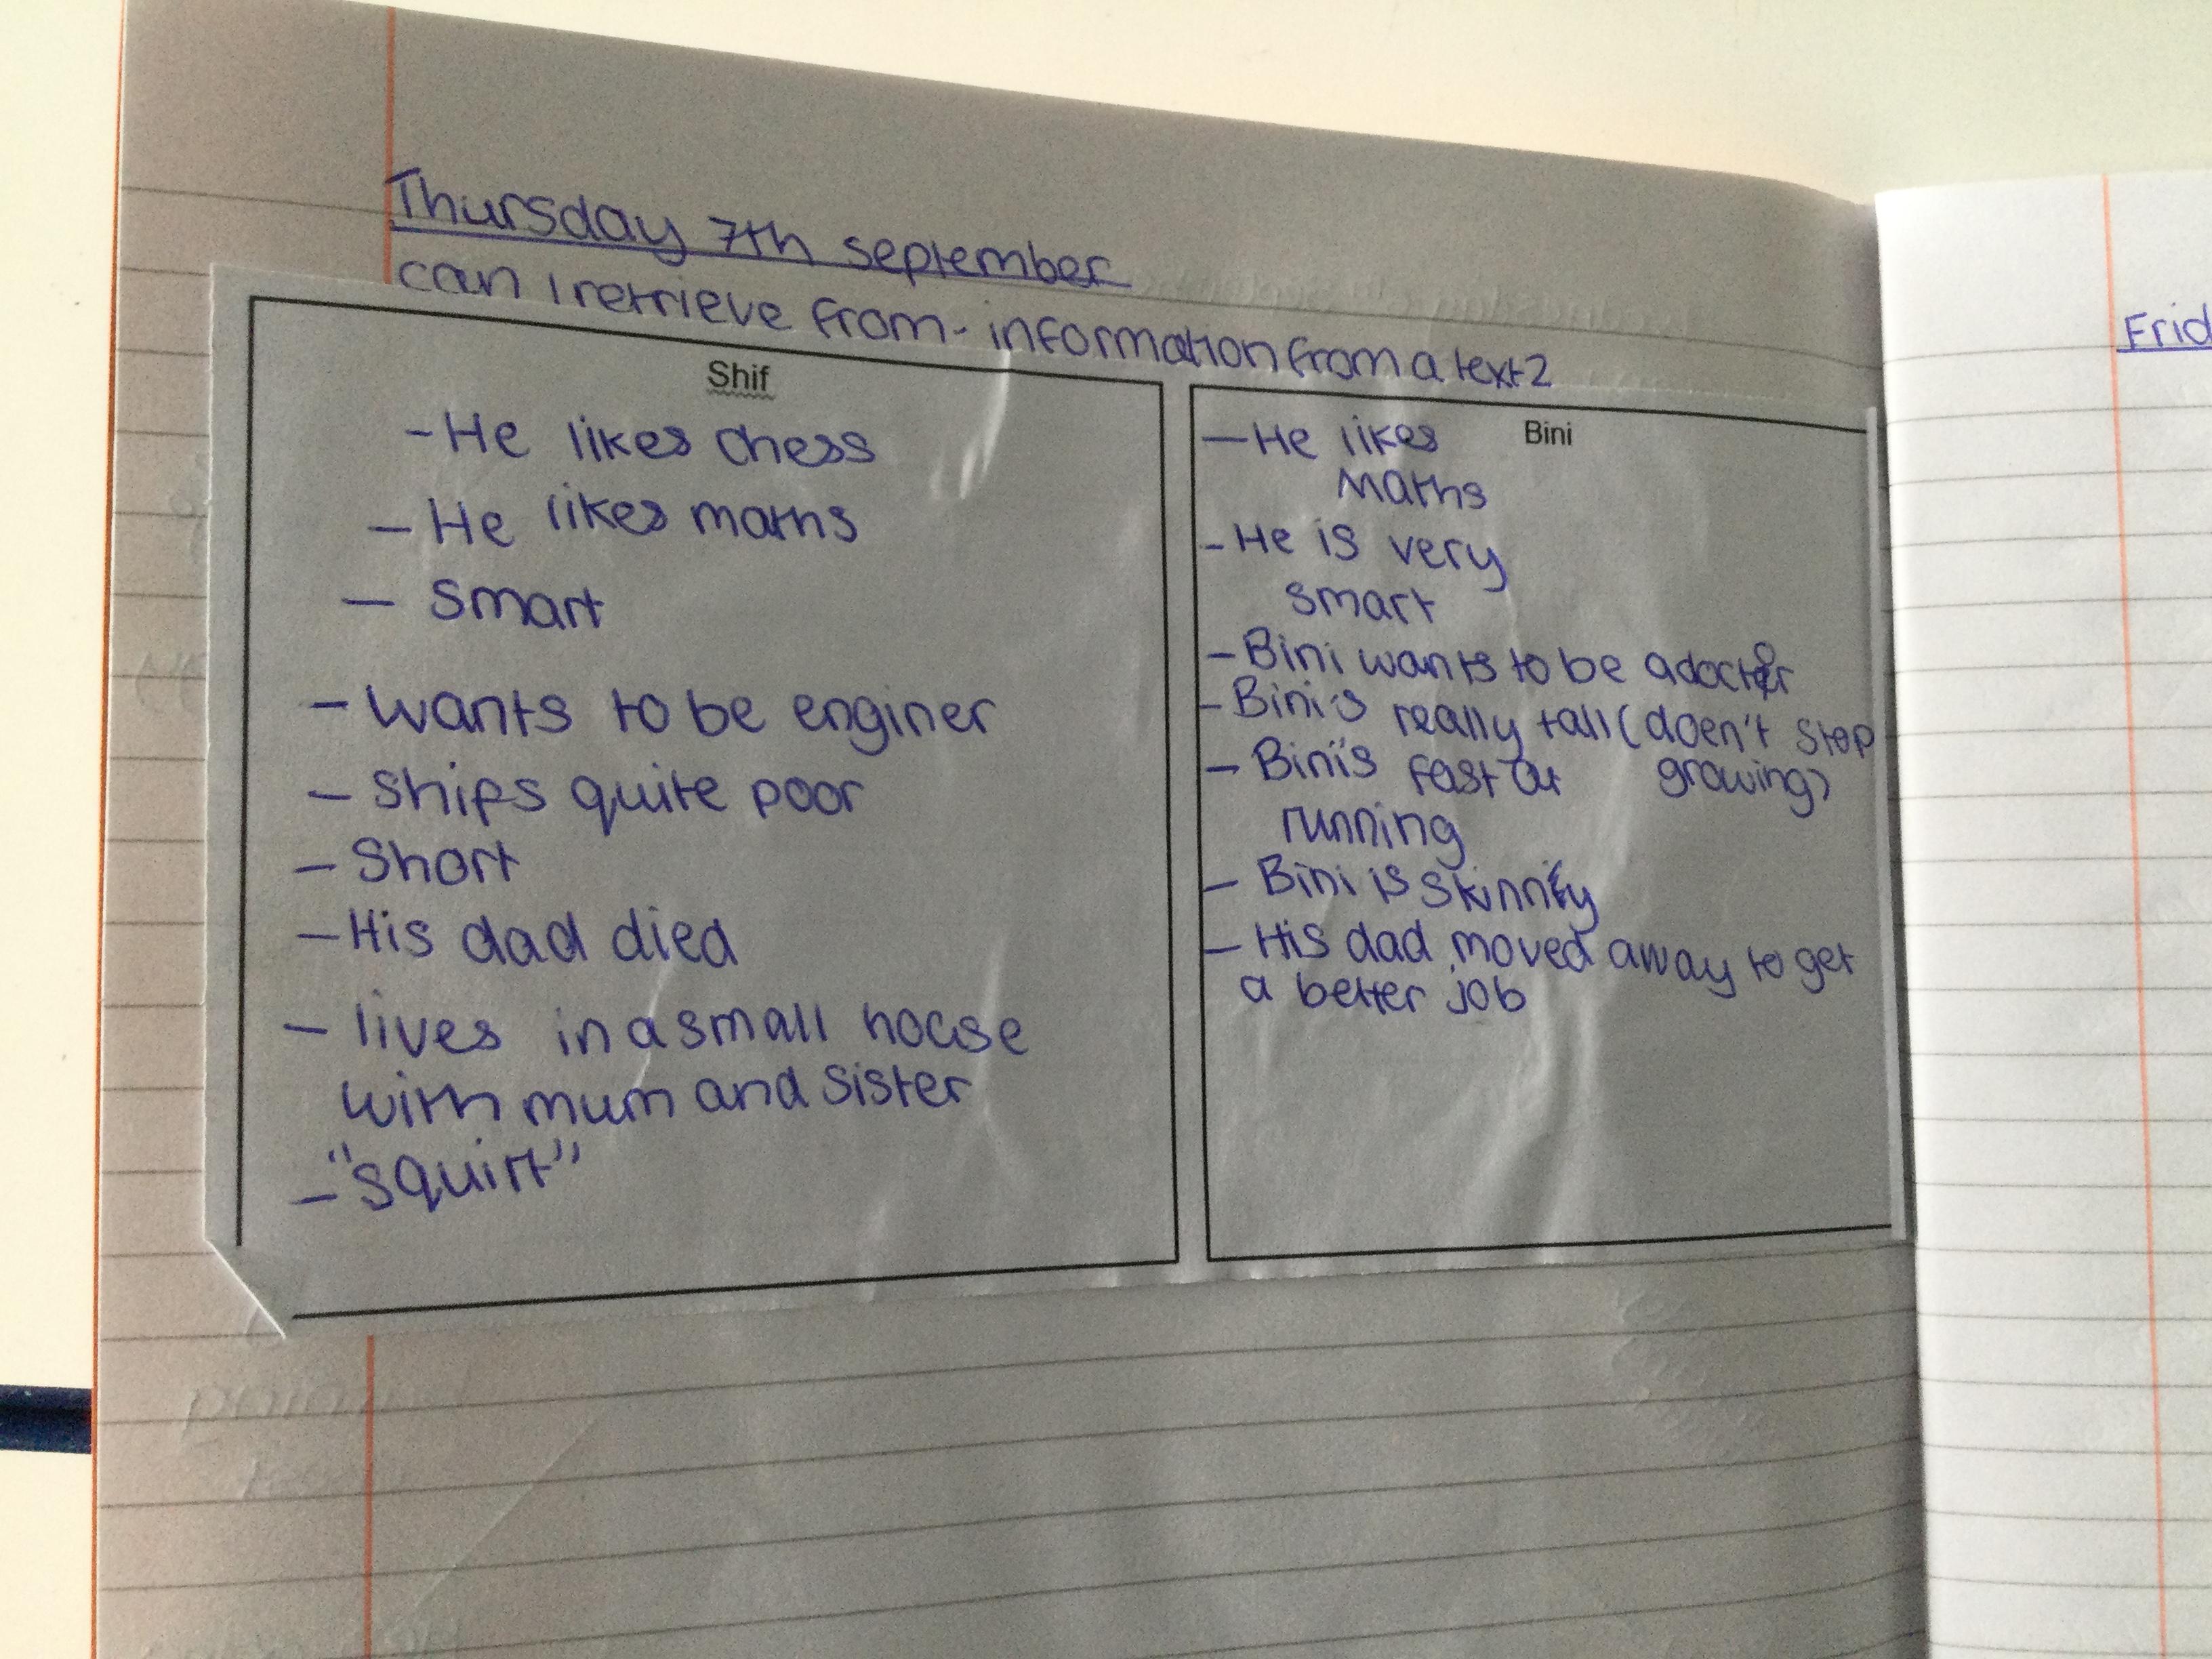 Thursday 7th september
can I retrieve from- information from a text?
Shif
-He likes chess
- He likes maths
- smart
- wants to be enginer
- Shifs quite poor
- Short
- His dad died
- lives in a small house
with mum and sister
- "squirt"
Bini
- He likes
Maths
- He is very
smart
- Bini wants to be a doctor
- Bini's really tall (doen't stop
growing)
- Bini's fast at
running
- Bini is skinny
- His dad moved away to get
a better job
Frid